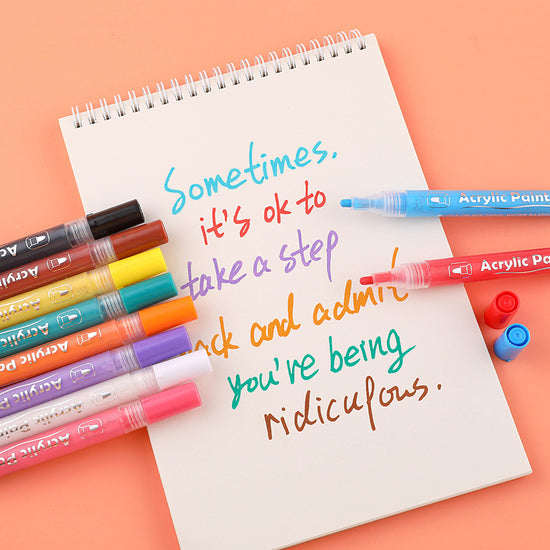 Sometimes.
it's ok to
take a step
ack and admit
you're being
ridiculous.
Acrylic Paint
Acrylic Pa
Acry
Acrylic
Acrylic
Acrylic P
Acrylic Pa
Acrylic P
Acrylic Pain
Acrylic Pa